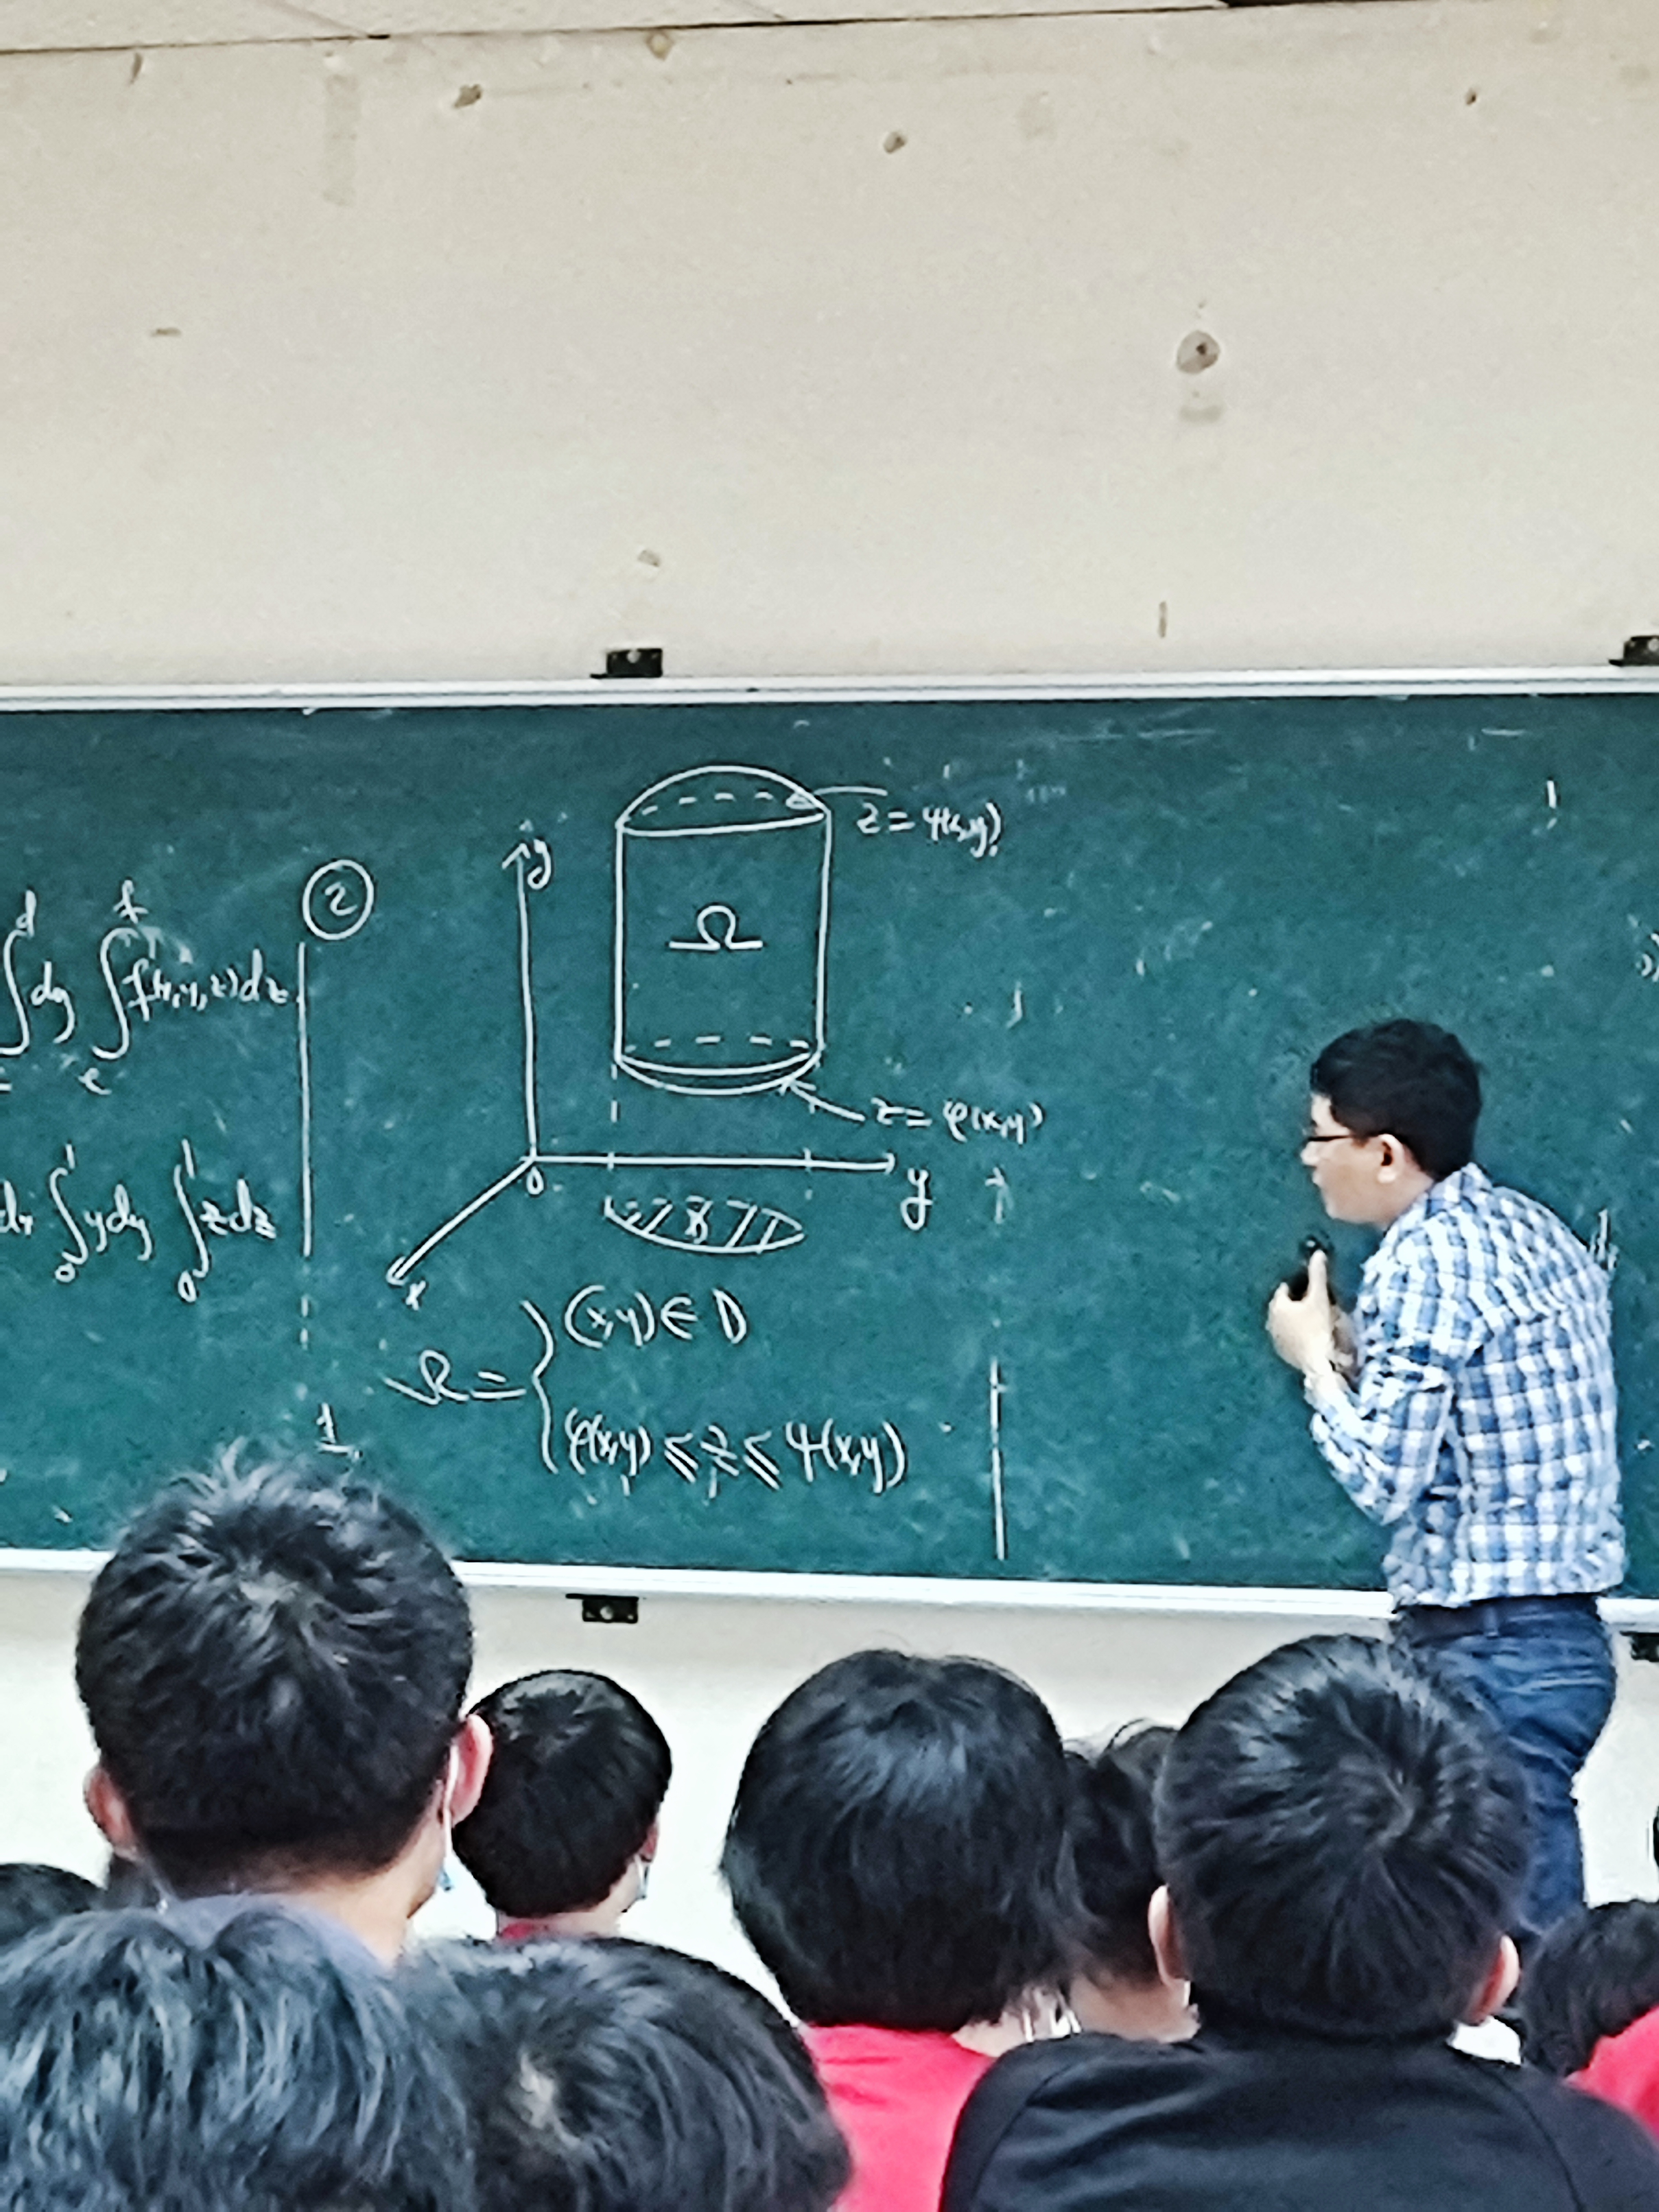 ∫ᵈ dy ∫_e^f f(x,y,z)dz
dx ∫₀¹ ydy ∫₀¹ zdz
②
y
z = ψ(x,y)
Ω
z = φ(x,y)
0
y
x
Ω = { (x,y) ∈ D
φ(x,y) ≤ z ≤ ψ(x,y)